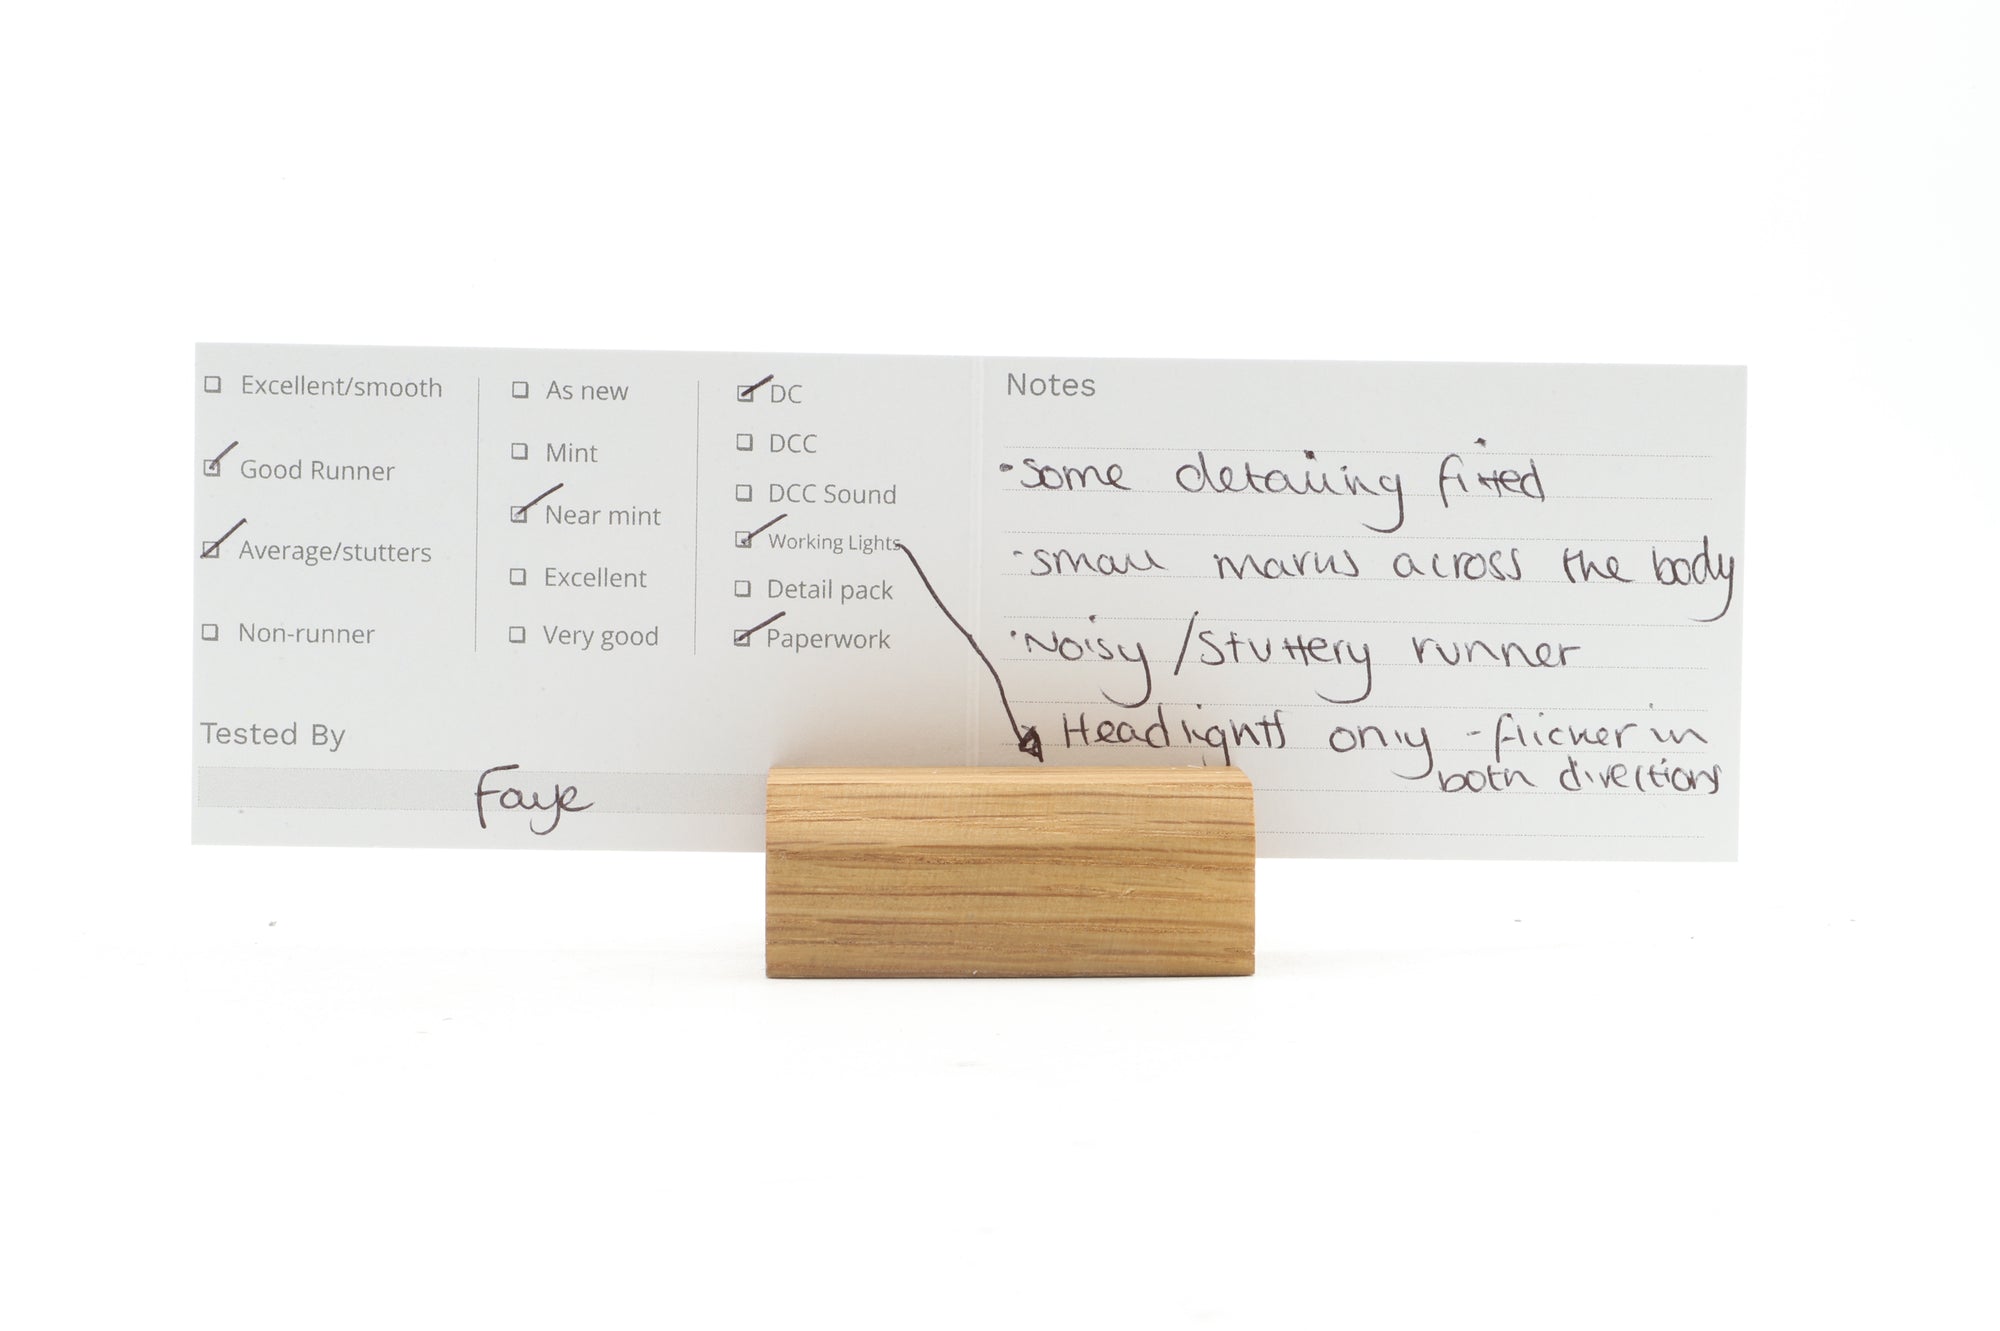 Excellent/smooth
Good Runner
Average/stutters
Non-runner
As new
Mint
Near mint
Excellent
Very good
DC
DCC
DCC Sound
Working Lights
Detail pack
Paperwork
Tested By
Faye
Notes
·Some detailing fitted
·small marks across the body
·Noisy/stuttery runner
Headlights only - flicker in
both directions